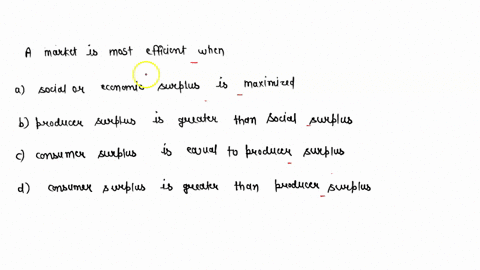 A market is most efficient when
a) social or economic surplus is maximized
b) producer surplus is greater than social surplus
c) consumer surplus is equal to producer surplus
d) consumer surplus is greater than producer surplus